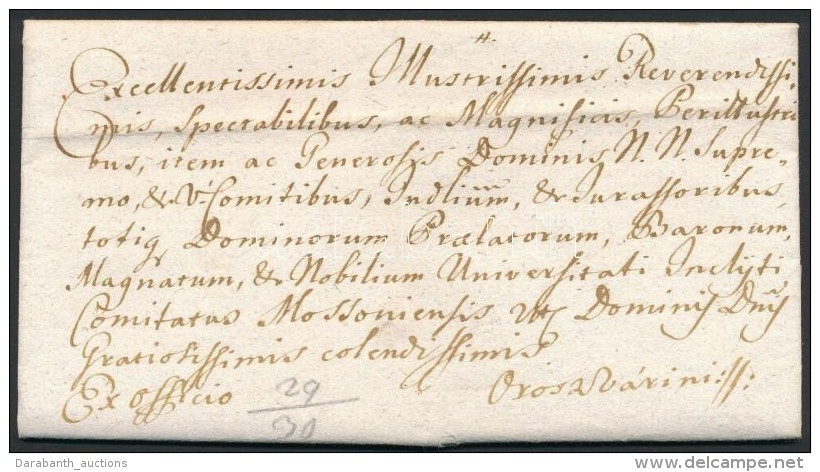 H.
Excellentissimis Illustrissimis Reverendissi-
mis, Spectabilibus, ac Magnificis, Perillustri
bus, item ac Generosis Dominis N. N. Supre-
mo, & V. Comitibus, Judlium, & Jurassoribus,
totiq Dominorum Prælatorum, Baronum,
Magnatum, & Nobilium Universitati Inclyti
Comitatus Mossoniensis Dominis Dnis
Gratiosissimis colendissimis
Ex Officio 29 Oroszvárini:
30
Darabanth_auctions delcampe.net